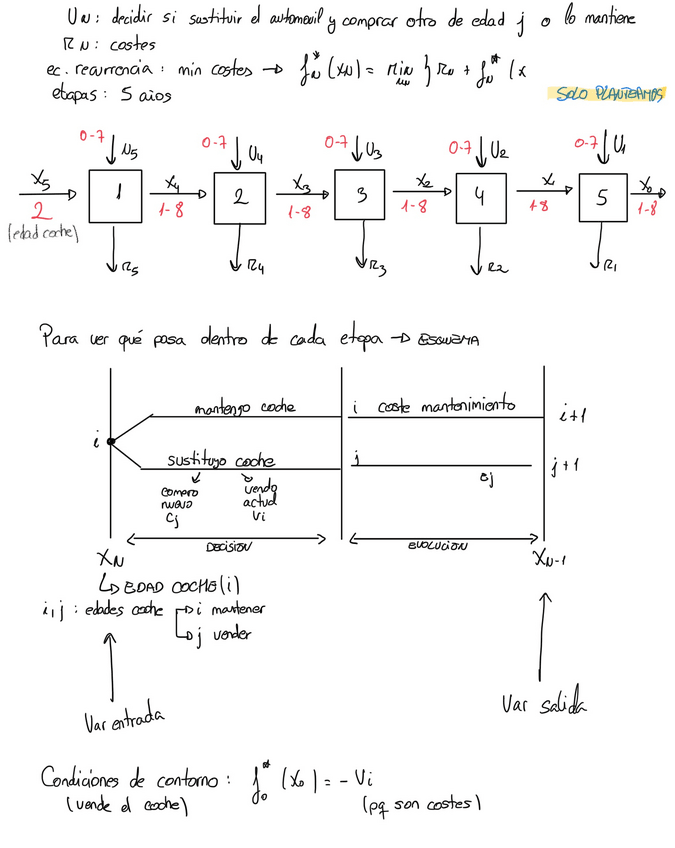 UN: decidir si sustituir el automovil y comprar otro de edad j o lo mantiene
RN: costes
ec. recurrencia: min costes → f*N (XN) = Min } RN + f*N (x
etapas: 5 años
SOLO PLANTEAMOS
0-7 U5 0-7 U4 0-7 U3 0-7 U2 0-7 U1
X5 1 X4 2 X3 3 X2 4 X1 5 X0
2 1-8 1-8 1-8 1-8 1-8
(edad coche)
R5 R4 R3 R2 R1
Para ver qué pasa dentro de cada etapa → ESQUEMA
mantengo coche i coste mantenimiento i+1
i
sustituyo coche j j+1
compro vendo ej
nuevo actual
Cj Vi
DECISION EVOLUCION
XN XN-1
↳ EDAD COCHE (i)
i,j : edades coche → i mantener
→ j vender
Var entrada Var salida
Condiciones de contorno: f*0 (X0) = - Vi
(vende el coche) (pq son costes)